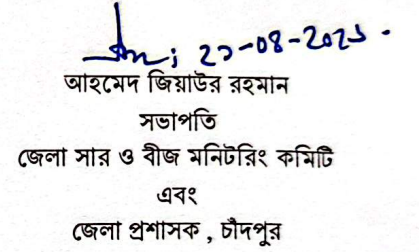 আহমেদ জিয়াউর রহমান
সভাপতি
জেলা সার ও বীজ মনিটরিং কমিটি
এবং
জেলা প্রশাসক , চাঁদপুর